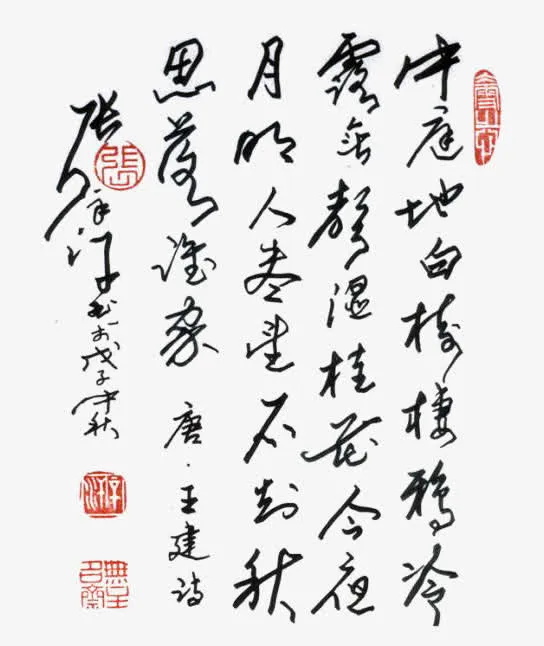 中庭地白樹棲鴉冷
露無聲湿桂花今夜
月明人盡望不知秋
思落誰家 唐·王建詩
張 書於戊子中秋
張